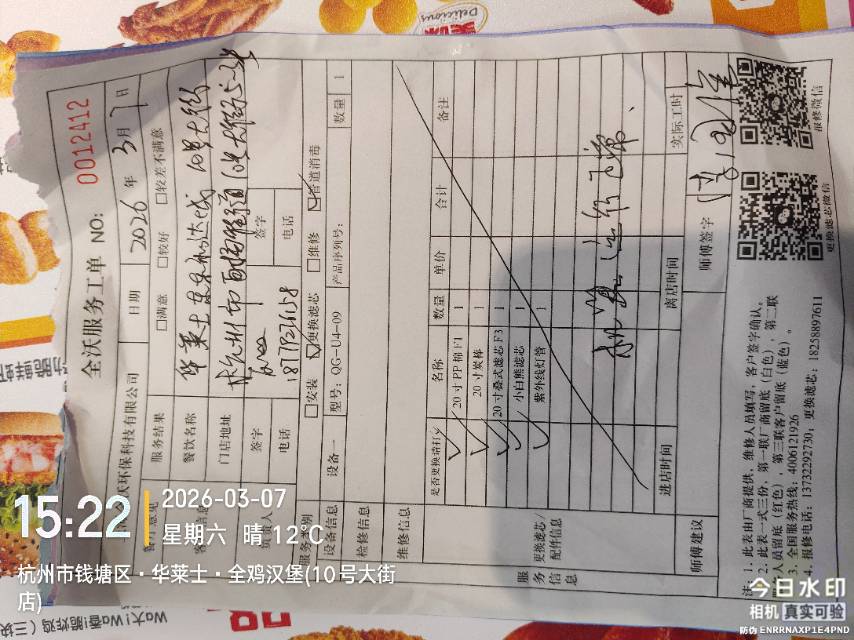 全沃服务工单 NO: 0012412
沃环保科技有限公司 日期 2026 年 3 月 7 日
服务结果 □满意 □较好 □较差不满意
餐饮名称 华莱士 10号大街
门店地址 杭州市
签字 签字
电话 电话
服务类别 □安装 ☑更换滤芯 □维修 ☑管道消毒
设备信息 设备一 型号: QG-U4-09 产品序列号: 数量 1
检修信息
维修信息
服务信息
更换滤芯/配件信息
是否更换请打✓ 名称 数量 单价 合计 备注
✓ 20 寸 PP 棉 F1 1
✓ 20 寸炭棒 1
✓ 20 寸叠式滤芯 F3 1
✓ 小白熊滤芯 1
紫外线灯管 1
机器运行正常.
进店时间 离店时间 实际工时
师傅建议 师傅签字
注: 1. 此表由厂商提供, 维修人员填写, 客户签字确认。
2. 此表一式三份, 第一联厂商留底 (白色), 第二联
人员留底 (红色), 第三联客户留底 (蓝色)。
3. 全国服务热线: 4006121926
4. 报修电话: 13732292730; 更换滤芯: 18258897611
更换滤芯微信
报修微信
Delicious
15:22
2026-03-07
星期六 晴 12℃
杭州市钱塘区·华莱士·全鸡汉堡(10号大街
店)
Wa大!Wa香!脆炸鸡(三块
今日水印
相机 真实可验
防伪 ENRRNAXP1E4PND